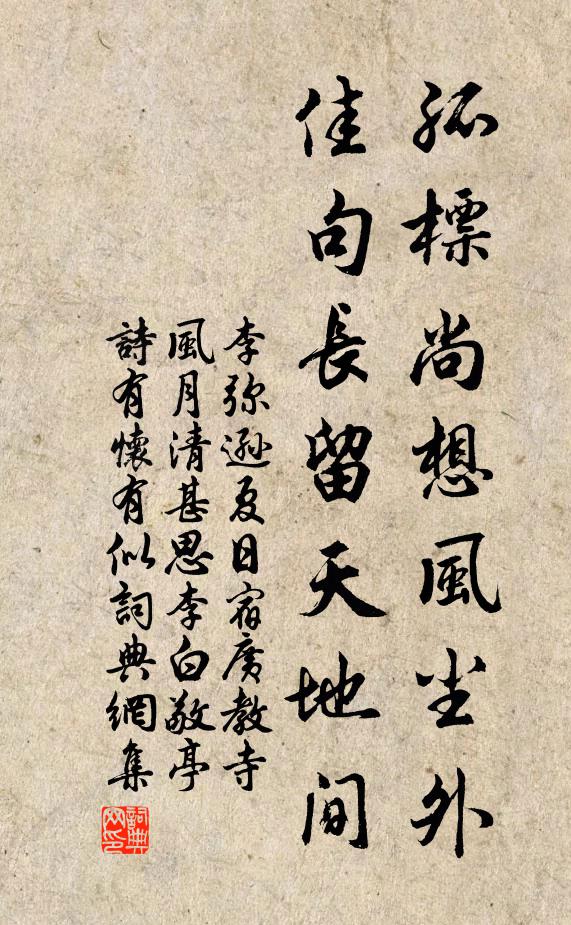 孤標尚想風尘外
佳句長留天地间
李弥遜夏日宿廣教寺
風月清甚思李白敬亭
詩有懷有似詞典網集
詞典网印